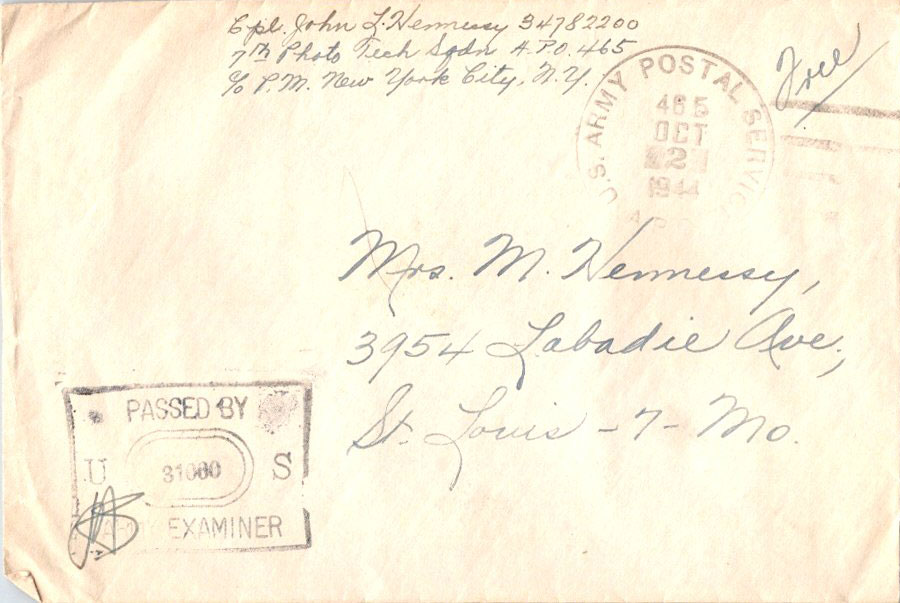 Cpl. John L. Hennessy 34782200
7th Photo Tech Sqdn A.P.O. 465
c/o P.M. New York City, N.Y.
Free
U.S. ARMY POSTAL SERVICE
465
OCT
2
1944
Mrs. M. Hennessy,
3954 Labadie Ave.,
St. Louis - 7 - Mo.
PASSED BY
U 31080 S
ARMY EXAMINER